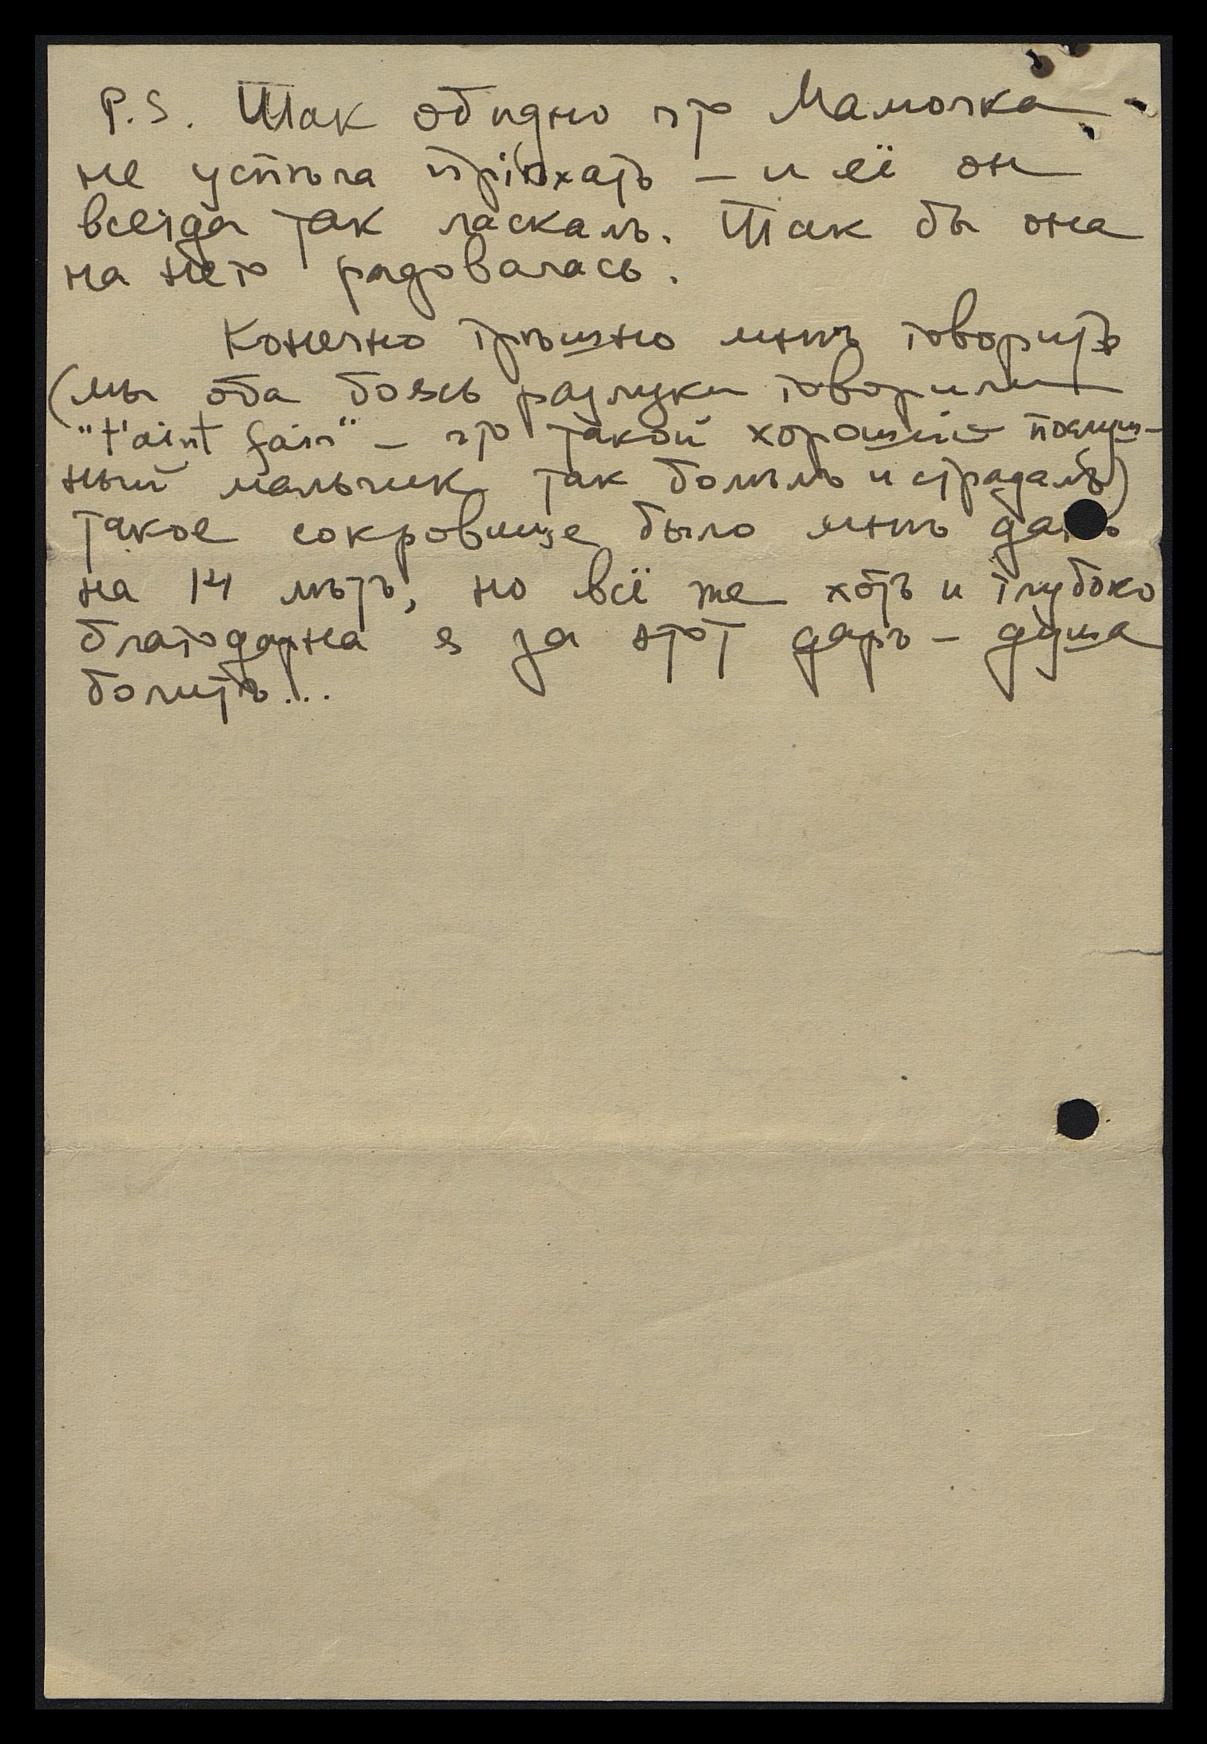 P.S. Так обидно что Мамочка
не успѣла пріѣхать – и её он
всегда так ласкалъ. Так бы она
на него радовалась.
Конечно грѣшно мнѣ говорить
(мы оба боясь разлуки говорили
"t'aint fair" – что такой хорошій послуш-
ный мальчик так болѣлъ и страдалъ)
такое сокровище было мнѣ дано
на 14 лѣтъ, но всё же хоть и глубоко
благодарна я за этот даръ – душа
болитъ...